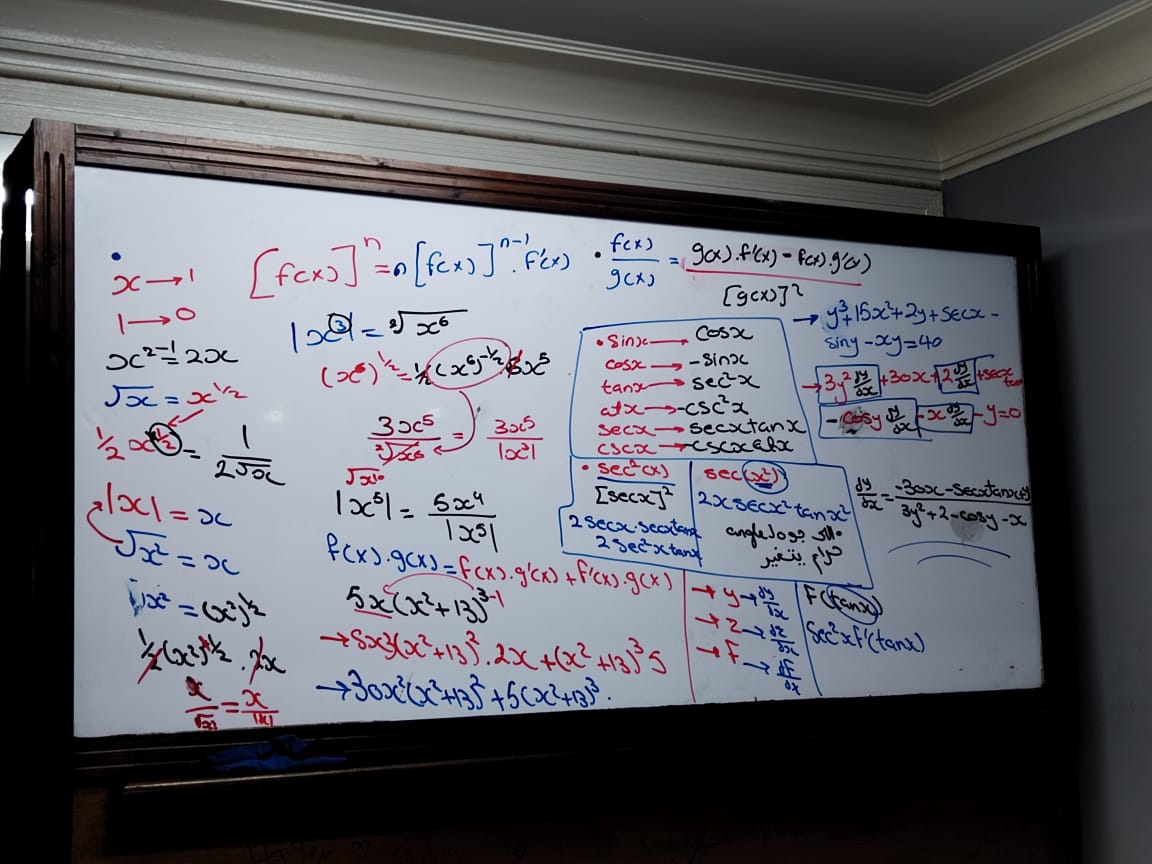 x → 1
1 → 0
x²⁻¹ = 2x
√x = x^1/2
1/2 x^1/2 = 1/2√x
|x| = x
√x² = x
√x² = (x²)^1/2
1/2 (x²)^-1/2 . 2x
x/√x² = x/|x|
[f(x)]ⁿ = n[f(x)]ⁿ⁻¹. f'(x)
|x³| = ²√x⁶
(x⁶)^1/2 = 1/2 (x⁶)^-1/2 6x⁵
3x⁵/²√x⁶ = 3x⁵/|x³|
√x¹⁰
|x⁵| = 5x⁴/|x⁵|
f(x).g(x) = f(x).g'(x) + f'(x).g(x)
5x(x²+13)³⁻¹
→ 5x3(x²+13)². 2x + (x²+13)³5
→ 30x²(x²+13)² + 5(x²+13)³.
• f(x)/g(x) = g(x).f'(x) - f(x).g'(x)/[g(x)]²
• sinx → cosx
cosx → -sinx
tanx → sec²x
→ -csc²x
secx → secxtanx
cscx →
• sec²(x)
[secx]²
2secx.secxtanx
2sec²xtanx
sec(x²)
2xsecx²tanx²
angle جوا
حرام يتغير
→ y → dy/dx
→ z → dz/dx
→ F → dF/dx
F(tanx)
sec²xf'(tanx)
→ y³+15x²+2y+secx -
siny - xy = 40
→ 3y² dy/dx + 30x + 2 dy/dx + secx tanx
- cosy dy/dx - x dy/dx - y = 0
dy/dx = -30x - secxtanx+y/3y²+2-cosy-x